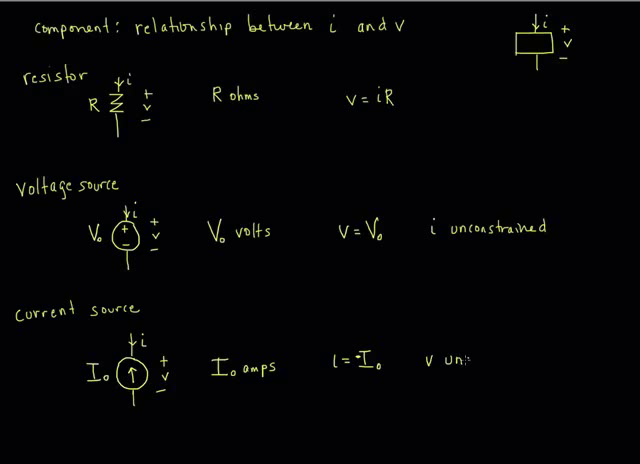 component: relationship between i and v
i + v −
resistor
R i + v − R ohms v = iR
Voltage source
V₀ + − i + v − V₀ volts v = V₀ i unconstrained
Current source
I₀ i + v − I₀ amps i = -I₀ v un